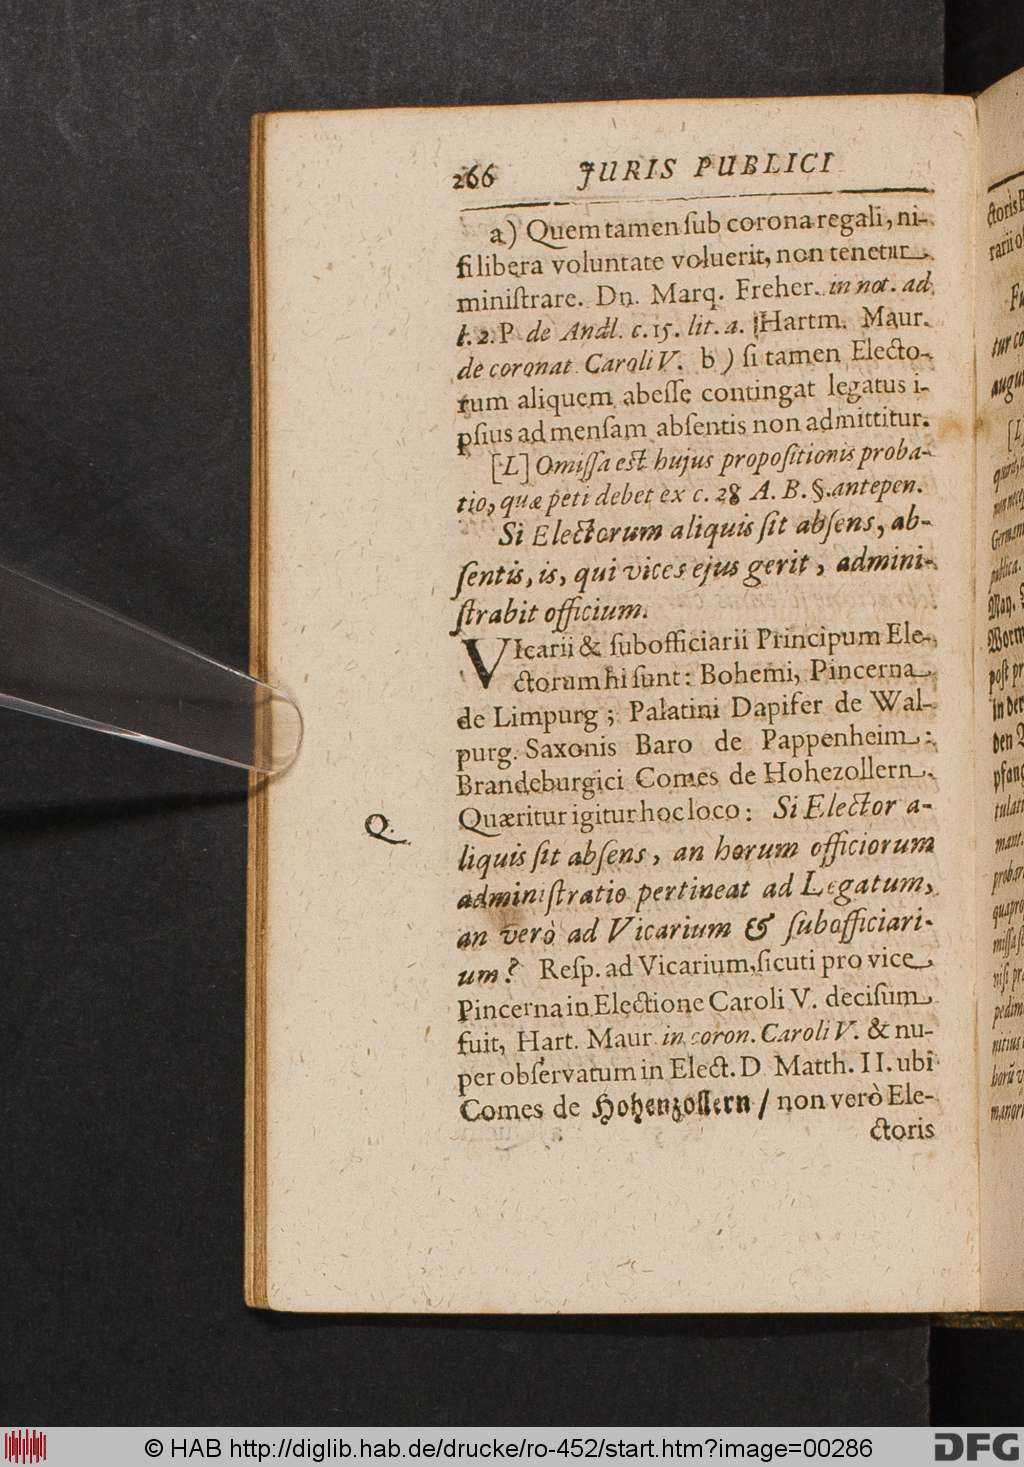 266 JURIS PUBLICI
a) Quem tamen ſub corona regali, ni-
ſi libera voluntate voluerit, non tenetur
miniſtrare. Dn. Marq. Freher. in not. ad
l. 2. P de Andl. c. 15. lit. a. Hartm. Maur.
de coronat. Caroli V. b) ſi tamen Electo-
rum aliquem abeſſe contingat legatus i-
pſius ad menſam abſentis non admittitur.
[L] Omiſſa est hujus propoſitionis proba-
tio, quæ peti debet ex c. 28 A. B. §. antepen.
Si Electorum aliquis ſit abſens, ab-
ſentis, is, qui vices ejus gerit, admini-
ſtrabit officium.
VIcarii & ſubofficiarii Principum Ele-
ctorum hi ſunt: Bohemi, Pincerna
de Limpurg; Palatini Dapifer de Wal-
purg. Saxonis Baro de Pappenheim:
Brandeburgici Comes de Hohezollern.
Q. Quæritur igitur hoc loco: Si Elector a-
liquis ſit abſens, an horum officiorum
adminiſtratio pertineat ad Legatum,
an verò ad Vicarium & ſubofficiari-
um? Reſp. ad Vicarium, ſicuti pro vice
Pincerna in Electione Caroli V. deciſum
fuit, Hart. Maur in coron. Caroli V. & nu-
per obſervatum in Elect. D Matth. II. ubi
Comes de Hohenzollern / non verò Ele-
ctoris
© HAB http://diglib.hab.de/drucke/ro-452/start.htm?image=00286
DFG